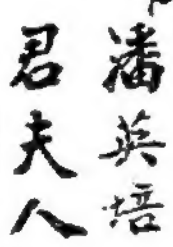 潘英培
君夫人